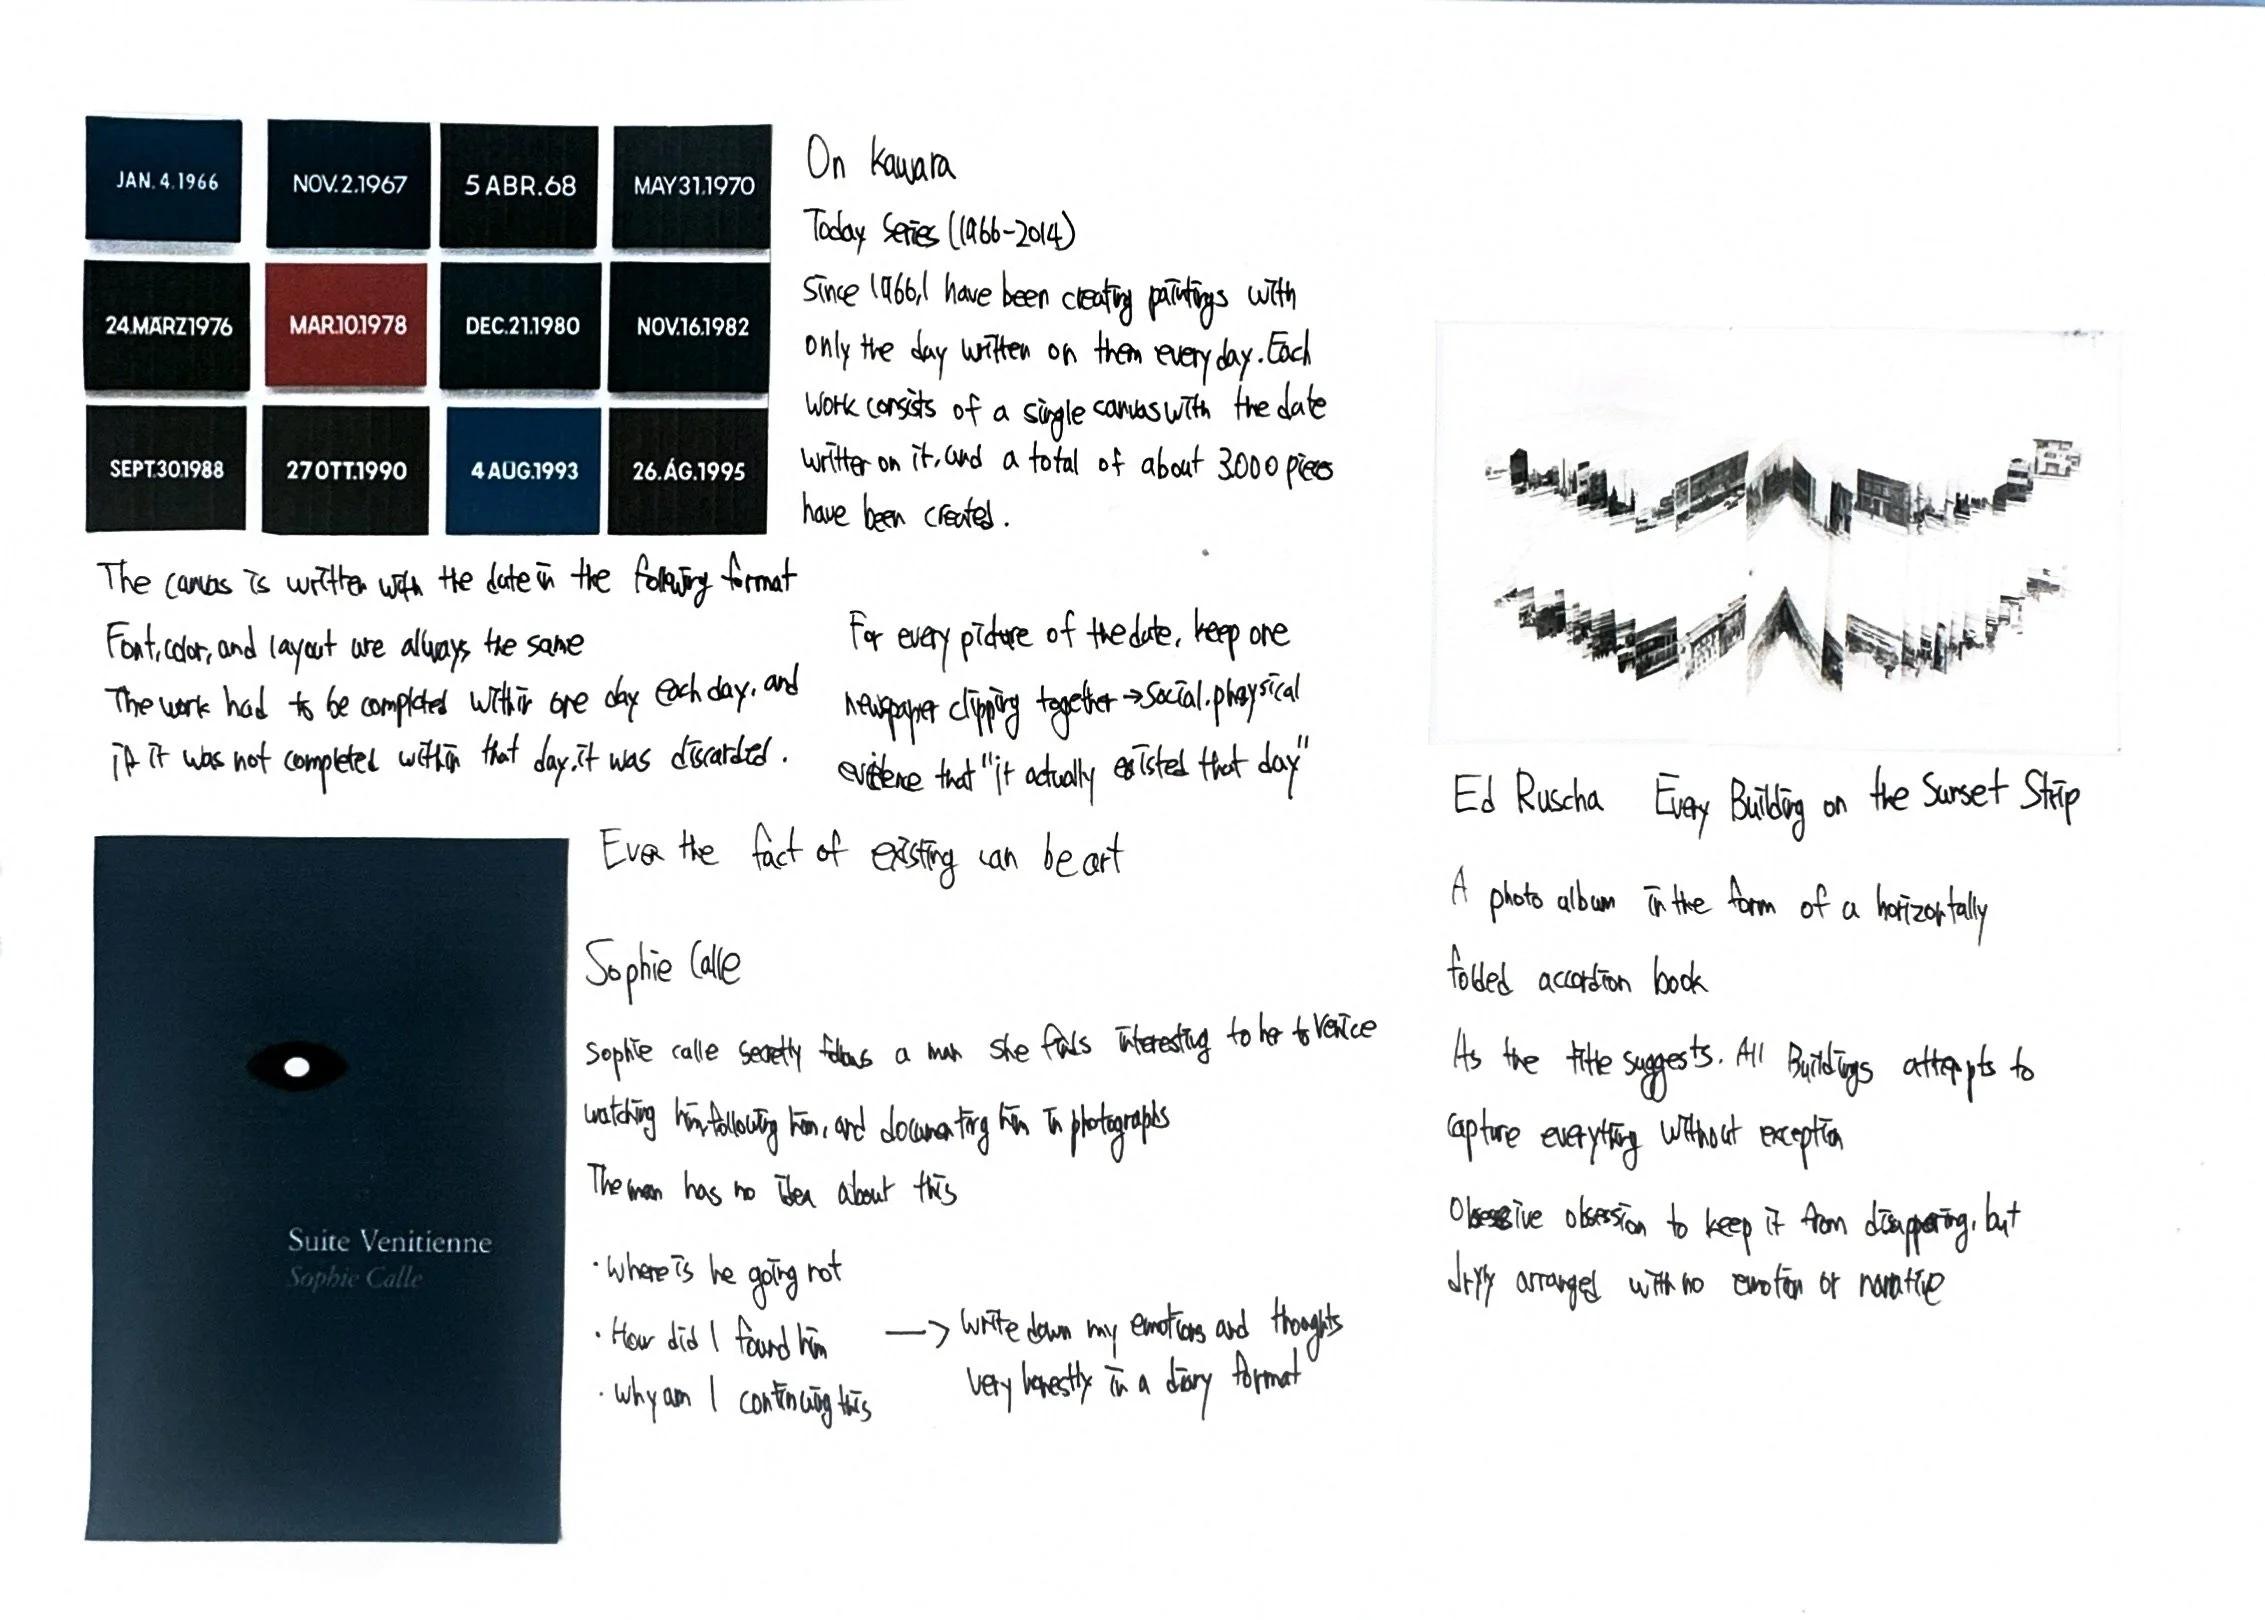 JAN. 4.1966
NOV.2.1967
5 ABR.68
MAY31.1970
24.MÄRZ1976
MAR.10.1978
DEC.21.1980
NOV.16.1982
SEPT.30.1988
27OTT.1990
4 AUG.1993
26.ÁG.1995
On Kawara
Today Series (1966-2014)
Since 1966, I have been creating paintings with
only the day written on them every day. Each
work consists of a single canvas with the date
written on it, and a total of about 3000 pieces
have been created.
The canvas is written with the date in the following format
Font, color, and layout are always the same
The work had to be completed within one day each day, and
if it was not completed within that day, it was discarded.
For every picture of the date, keep one
newspaper clipping together → social, physical
evidence that "it actually existed that day"
Even the fact of existing can be art
Suite Venitienne
Sophie Calle
Sophie Calle
Sophie calle secretly follows a man she finds interesting to her to Venice
watching him, following him, and documenting him in photographs
The man has no idea about this
· Where is he going not
· How did I found him
· Why am I continuing this
→ Write down my emotions and thoughts
very honestly in a diary format
Ed Ruscha Every Building on the Sunset Strip
A photo album in the form of a horizontally
folded accordion book
As the title suggests. All Buildings attempts to
capture everything without exception
Obsessive obsession to keep it from disappearing, but
dryly arranged with no emotion or narrative